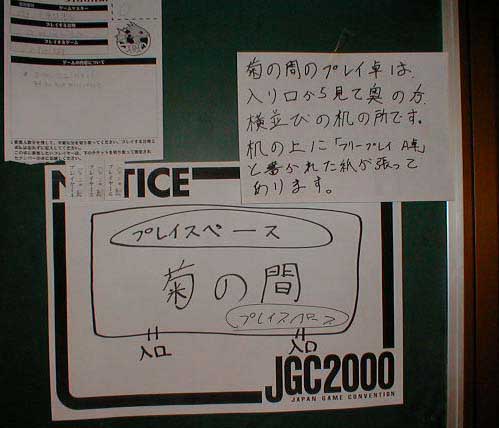 ゲームマスター
プレイする日時
プレイするゲーム
ゲームの内容について
菊の間のプレイ卓は、
入り口から見て奥の方、
横並びの机の所です。
机の上に「フリープレイ A卓」
と書かれた紙が張って
あります。
NOTICE
プレイスペース
菊の間
プレイスペース
入口
入口
JGC2000
JAPAN GAME CONVENTION